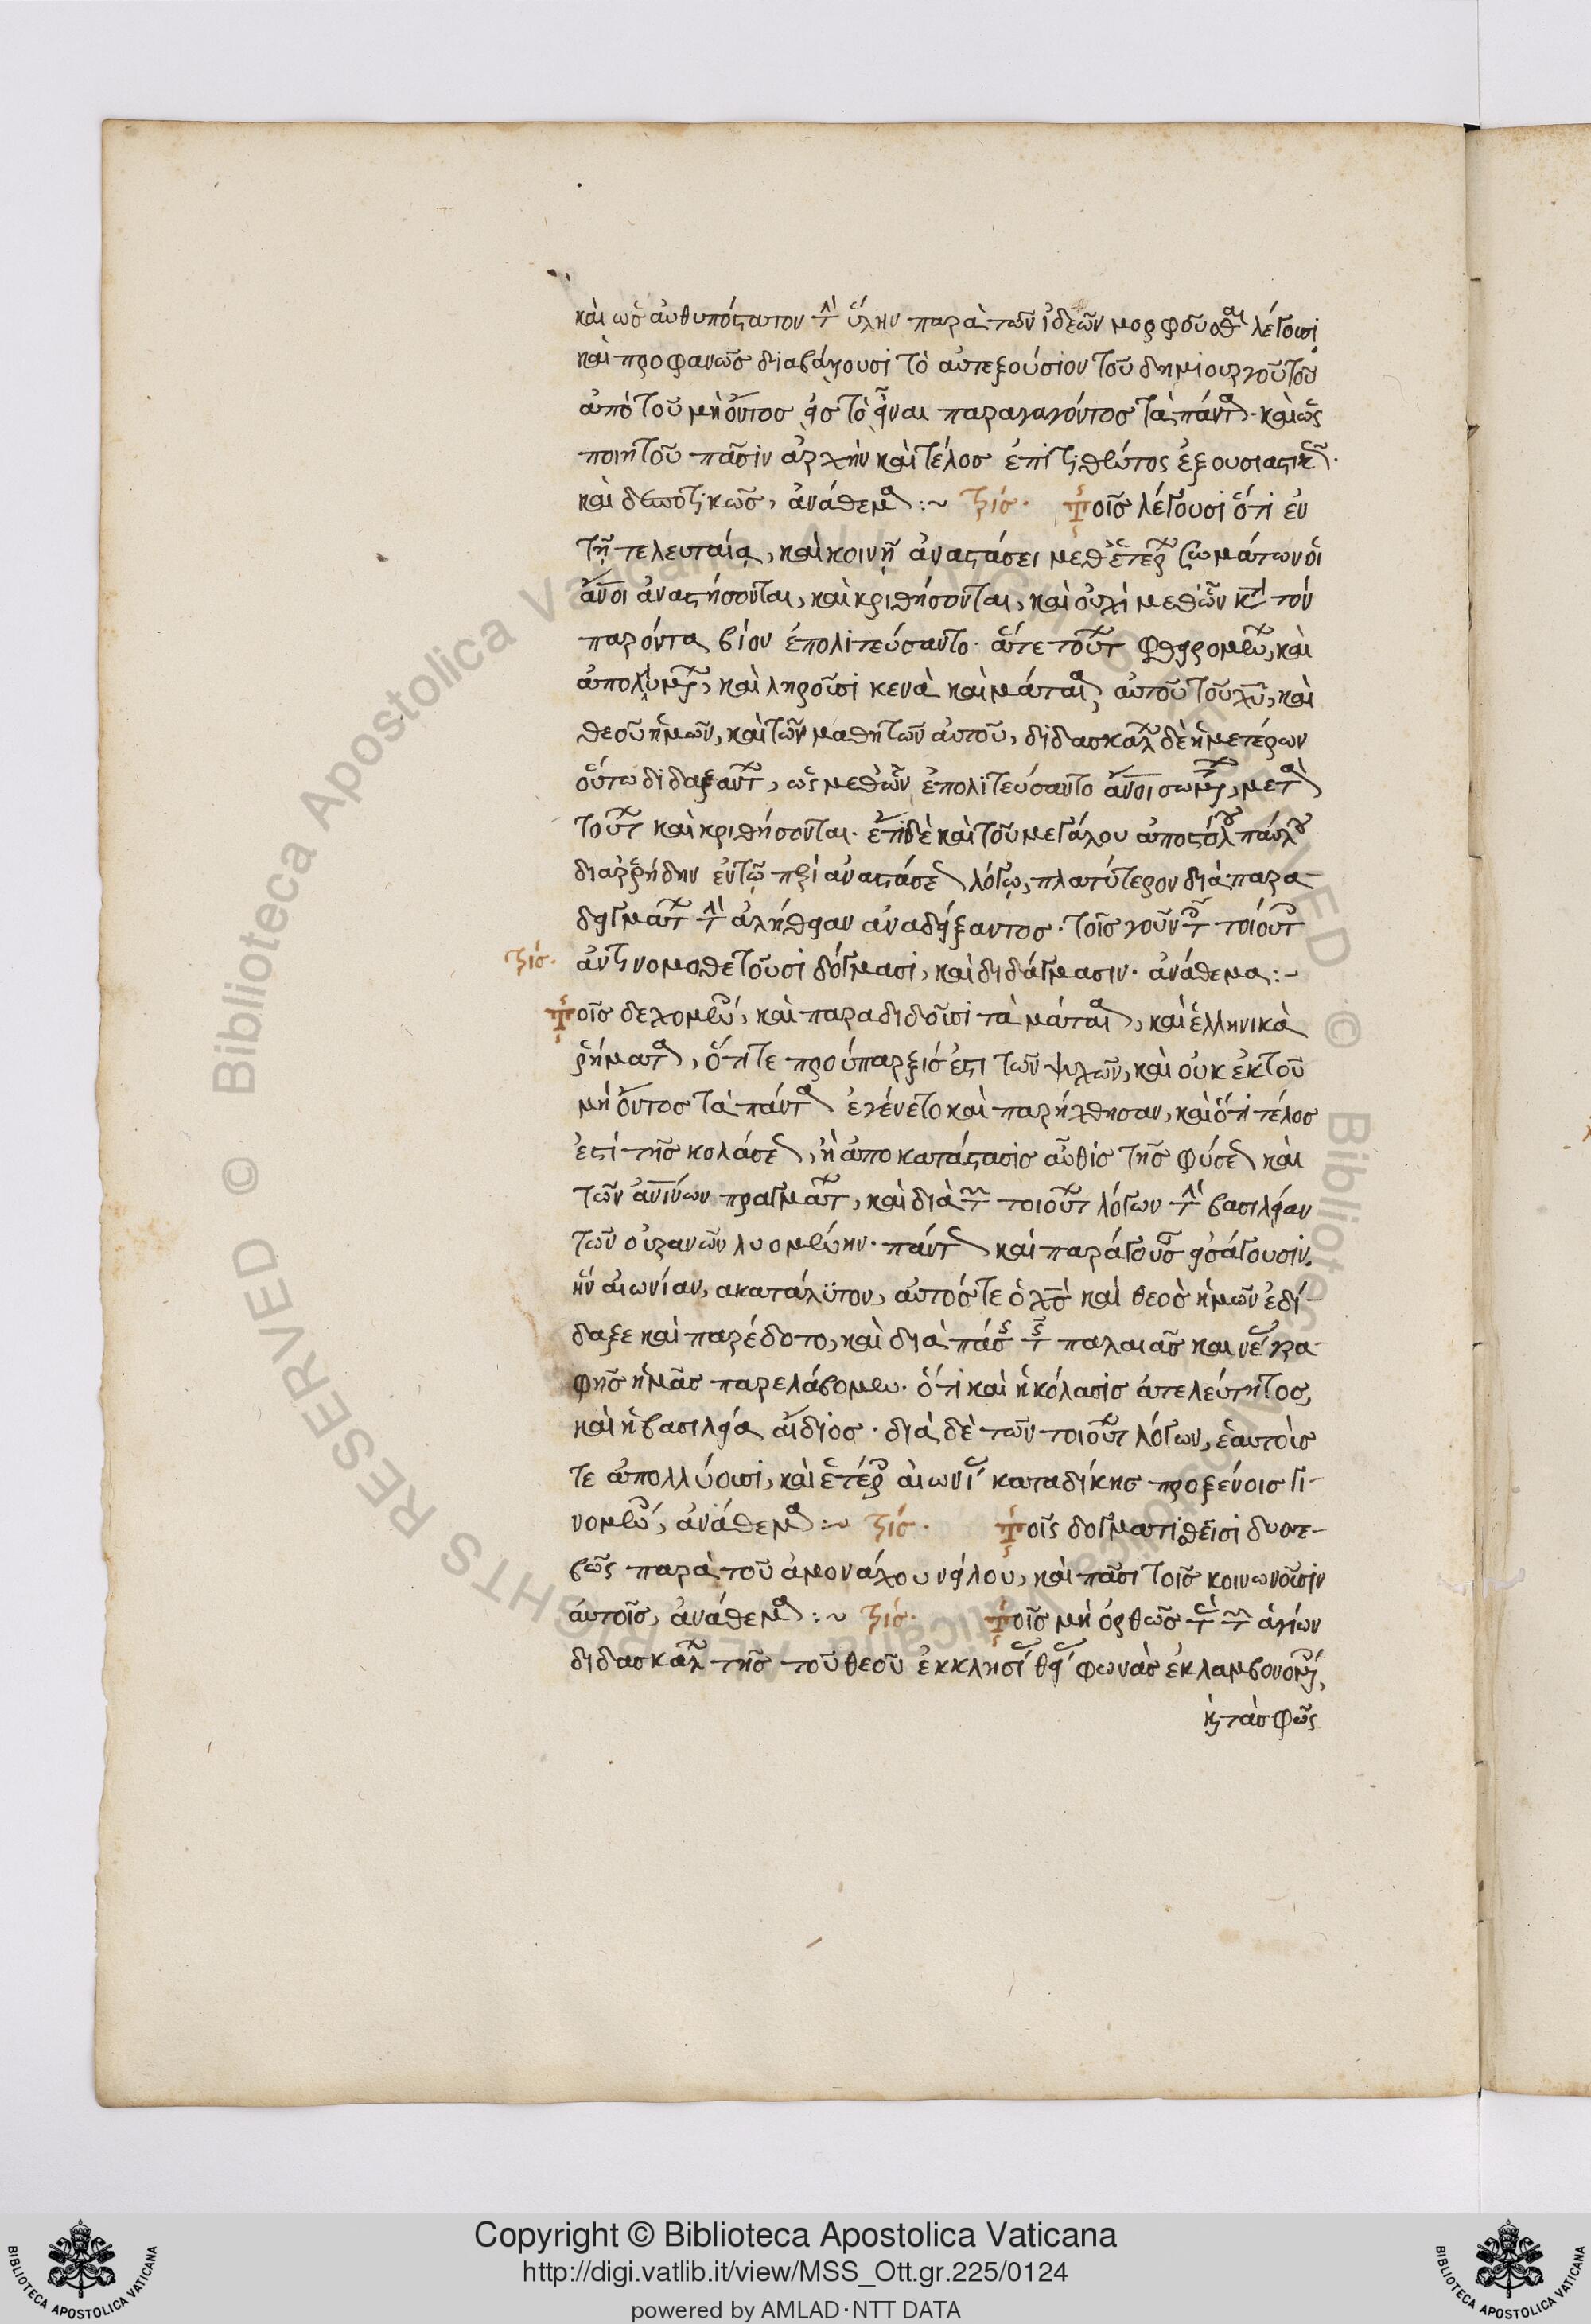 καὶ ὡς αὐθυπόστατον τὴν ὕλην παρὰ τῶν ἰδεῶν μορφοῦσθαι λέγουσι
καὶ προφανῶς διαβάλλουσι τὸ αὐτεξούσιον τοῦ δημιουργοῦ τοῦ
ἀπὸ τοῦ μὴ ὄντος εἰς τὸ εἶναι παραγαγόντος τὰ πάντα· καὶ ὡς
ποιητοῦ πᾶσιν ἀρχὴν καὶ τέλος ἐπιτιθέντος ἐξουσιαστικῶς·
καὶ δεσποτικῶς, ἀνάθεμα :~ τρίς· Τοῖς λέγουσι ὅτι ἐν
τῇ τελευταίᾳ, καὶ κοινῇ ἀναστάσει μεθ' ἑτέρων σωμάτων οἱ
ἄνοι ἀναστήσονται, καὶ κριθήσονται, καὶ οὐχὶ μεθ' ὧν κατὰ τὸν
παρόντα βίον ἐπολιτεύσαντο· ἅτε τούτων φθειρομένων, καὶ
ἀπολλυμένων, καὶ ληροῦσι κενὰ καὶ μάταια, αὐτοῦ τοῦ χῦ, καὶ
θεοῦ ἡμῶν, καὶ τῶν μαθητῶν αὐτοῦ, διδασκάλων δὲ ἡμετέρων
οὕτω διδαξάντων, ὡς μεθ' ὧν ἐπολιτεύσαντο ἄνοι σωμάτων, μετὰ
τούτων καὶ κριθήσονται· ἔτι δὲ καὶ τοῦ μεγάλου ἀποστόλου παύλου
διαρρήδην ἐν τῷ περὶ ἀναστάσεως λόγῳ, πλατύτερον διὰ παρα-
δειγμάτων τὴν ἀλήθειαν ἀναδείξαντος· τοῖς γοῦν τῶν τοιούτων
τρίς· ἀντινομοθετοῦσι δόγμασι, καὶ διδάγμασιν· ἀνάθεμα :-
Τοῖς δεχομένοις, καὶ παραδιδοῦσι τὰ μάταια, καὶ ἑλληνικὰ
ῥήματα, ὅτι τε προύπαρξις ἐστι τῶν ψυχῶν, καὶ οὐκ ἐκ τοῦ
μὴ ὄντος τὰ πάντα ἐγένετο καὶ παρήχθησαν, καὶ ὅτι τέλος
ἐστὶ τῆς κολάσεως, ἢ ἀποκατάστασις αὖθις τῆς φύσεως καὶ
τῶν ἀνίνων πραγμάτων, καὶ διὰ τῶν τοιούτων λόγων τὴν βασιλείαν
τῶν οὐρανῶν λυομένην· πάντως καὶ παράγουσαν εἰσάγουσιν.
ἣν αἰωνίαν, ἀκατάλυτον, αὐτός τε ὁ χς καὶ θεὸς ἡμῶν ἐδί-
δαξε καὶ παρέδοτο, καὶ διὰ πάσης τῆς παλαιᾶς καὶ νέας γρα-
φῆς ἡμᾶς παρελάβομεν· ὅτι καὶ ἡ κόλασις ἀτελεύτητος,
καὶ ἡ βασιλεία ἀΐδιος· διὰ δὲ τῶν τοιούτων λόγων, ἑαυτοὺς
τε ἀπολλύουσι, καὶ ἑτέροις αἰωνίας καταδίκης προξένοις γι-
νομένοις, ἀνάθεμα :~ τρίς· Τοῖς δογματιθεῖσι δυσσε-
βῶς παρὰ τοῦ ἀμονάχου νείλου, καὶ πᾶσι τοῖς κοινωνοῦσιν
αὐτοῖς, ἀνάθεμα :~ τρίς· Τοῖς μὴ ὀρθῶς τὰς τῶν ἁγίων
διδασκάλων τῆς τοῦ θεοῦ ἐκκλησίας θείας φωνὰς ἐκλαμβανομένοις,
κ τὰ σαφῶς
Copyright © Biblioteca Apostolica Vaticana
http://digi.vatlib.it/view/MSS_Ott.gr.225/0124
powered by AMLAD·NTT DATA